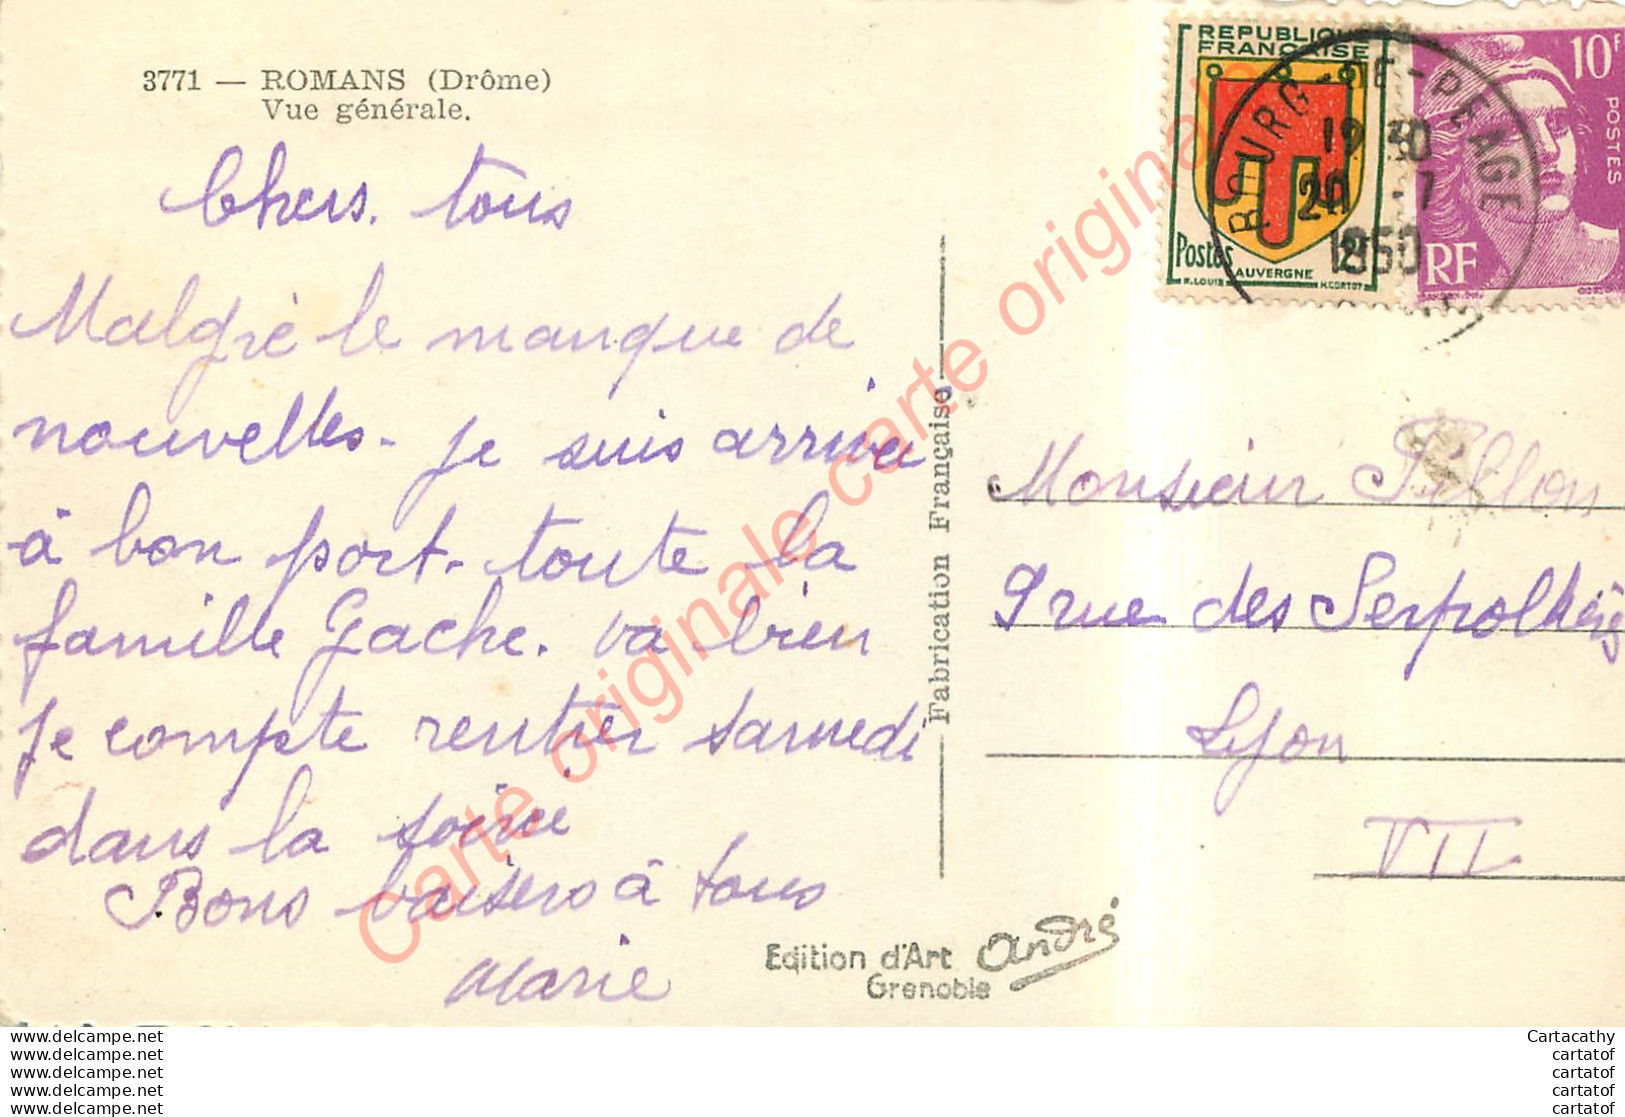 3771 — ROMANS (Drôme)
Vue générale.
Chers. tous
Malgré le manque de
nouvelles - je suis arrivée
à bon port. toute la
famille Gache. va bien
je compte rentrer samedi
dans la soirée
Bons baisers à tous
Marie
Fabrication Française
Edition d'Art André
Grenoble
REPUBLIQUE
FRANÇAISE
Postes
2F
AUVERGNE
R. LOUIS
H. CORTOT
10F
POSTES
RF
BOURG-DE-PEAGE
19 30
20 -7
1950
Monsieur Pillon
9 rue des Serpollières
Lyon
VII
Carte originale carte originale carte originale
www.delcampe.net
www.delcampe.net
www.delcampe.net
www.delcampe.net
www.delcampe.net
Cartacathy
cartatof
cartatof
cartatof
cartatof